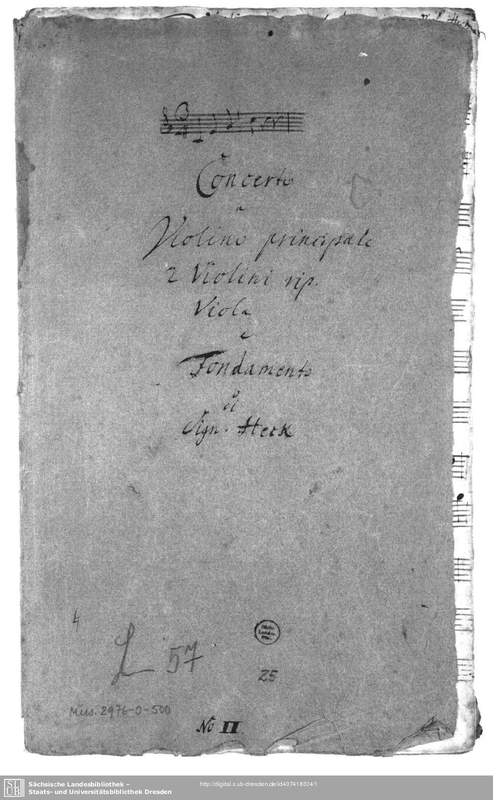 Concerto
a
Violino principale
2 Violini rip.
Viola
e
Fondamento
di
Sign. Heck
4
L 57
25
Mus. 2976-O-500
No II
SLUB
Sächsische Landesbibliothek –
Staats- und Universitätsbibliothek Dresden
http://digital.slub-dresden.de/id407418304/1